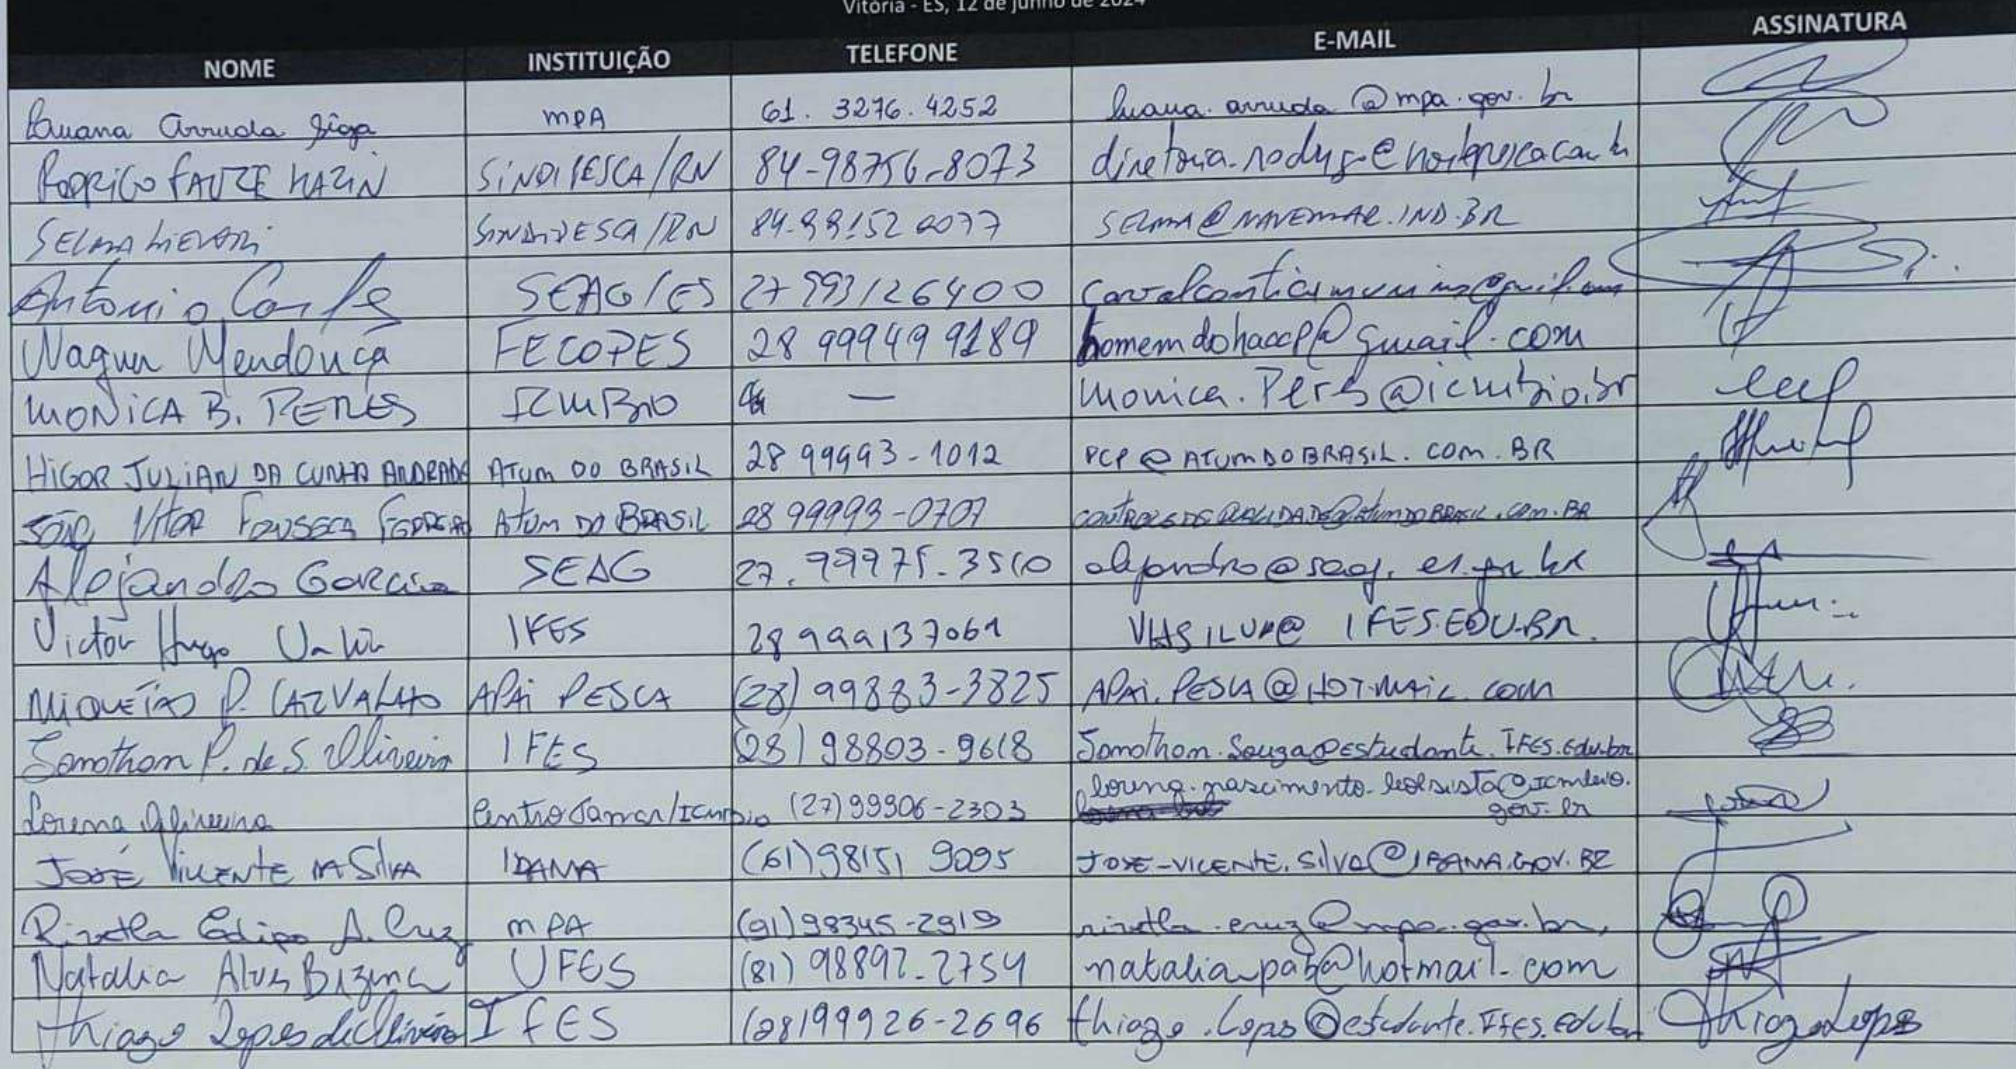 Vitória - ES, 12 de junho de 2024
NOME INSTITUIÇÃO TELEFONE E-MAIL ASSINATURA
Luana Arruda MPA 61. 3276. 4252 luana.arruda@mpa.gov.br
RODRIGO FAUZE HAZIN SINDIPESCA/RN 84-98756-8073
SELMA SINDIPESCA/RN SELMA@NAVEMAR.IND.BR
Antonio Carlos SEAG/ES 27 993126400
Wagner Mendonça FECOPES 28 99949 9189 homemdohaccp@gmail.com
MONICA B. PERES ICMBIO — monica.Peres@icmbio.br
HIGOR JULIAN DA CUNHA ANDRADE ATUM DO BRASIL 28 99993-1012 PCP@ATUMDOBRASIL.COM.BR
JOÃO VITOR FONSECA ATUM DO BRASIL 28 99993-0707 CONTROLEDEQUALIDADE@ATUMDOBRASIL.COM.BR
Alejandro Garcia SEAG 27.99975-3510 alejandro@seag.es.gov.br
Victor Hugo IFES 28 999137061 @IFES.EDU.BR
MIQUEIAS P. CARVALHO APAI PESCA (28) 99883-3825 APAI.PESCA@HOTMAIL.COM
Jonathan P. de S. Oliveira IFES (28) 98803-9618 Jonathan.Souza@estudante.IFES.edu.br
Lorena Oliveira Centro Tamar/ICMBio (27) 99906-2303 lorena.nascimento.bolsista@icmbio.
gov.br
JOSÉ VICENTE DA SILVA IBAMA (61) 98151 9095 JOSE-VICENTE.SILVA@IBAMA.GOV.BR
Rizetla Edipo A. Cruz MPA (91) 98345-2919 rizetla.cruz@mpa.gov.br
Natalia Alves Bezerra UFES (81) 98892-2754 natalia_pab@hotmail.com
Thiago Lopes de Oliveira IFES (28) 99926-2696 thiago.lopes@estudante.IFES.edu.br Thiago Lopes